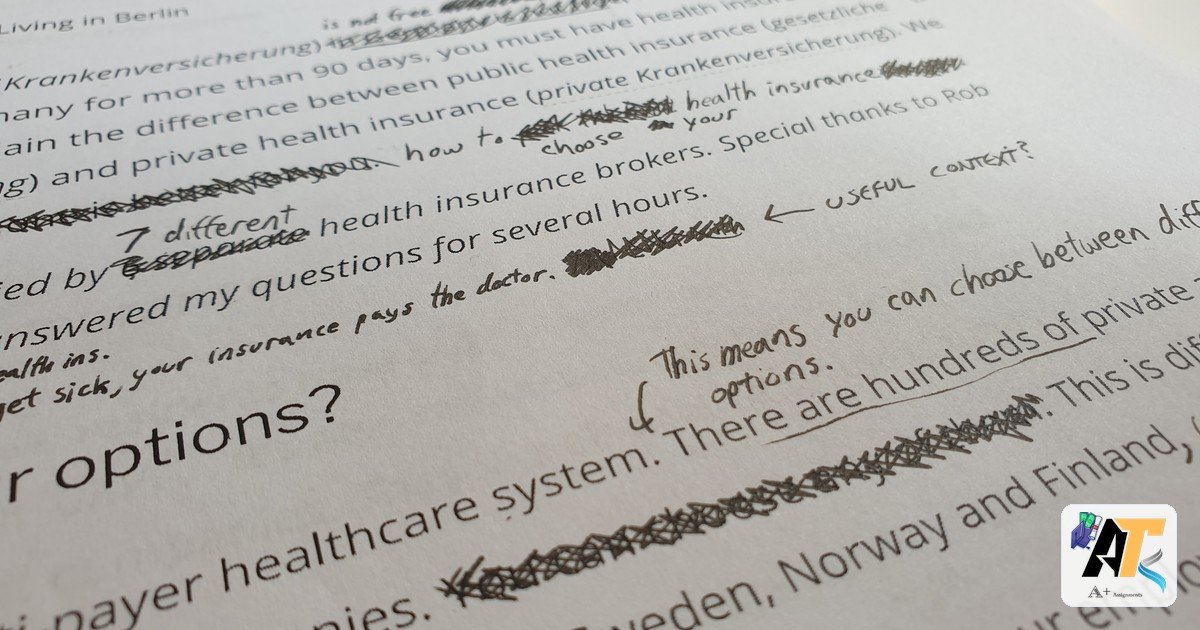 Living in Berlin
is not free
Krankenversicherung)
many for more than 90 days, you must have health
ain the difference between public health insurance (gesetzliche
g) and private health insurance (private Krankenversicherung). We
how to health insurance
choose your
7 different
ed by health insurance brokers. Special thanks to Rob
nswered my questions for several hours.
← USEFUL CONTEXT?
ealth ins.
get sick, your insurance pays the doctor.
This means you can choose between diff
options.
r options?
payer healthcare system. There are hundreds of private
nies. This is dif
weden, Norway and Finland,
ur
AT
A+ Assignments